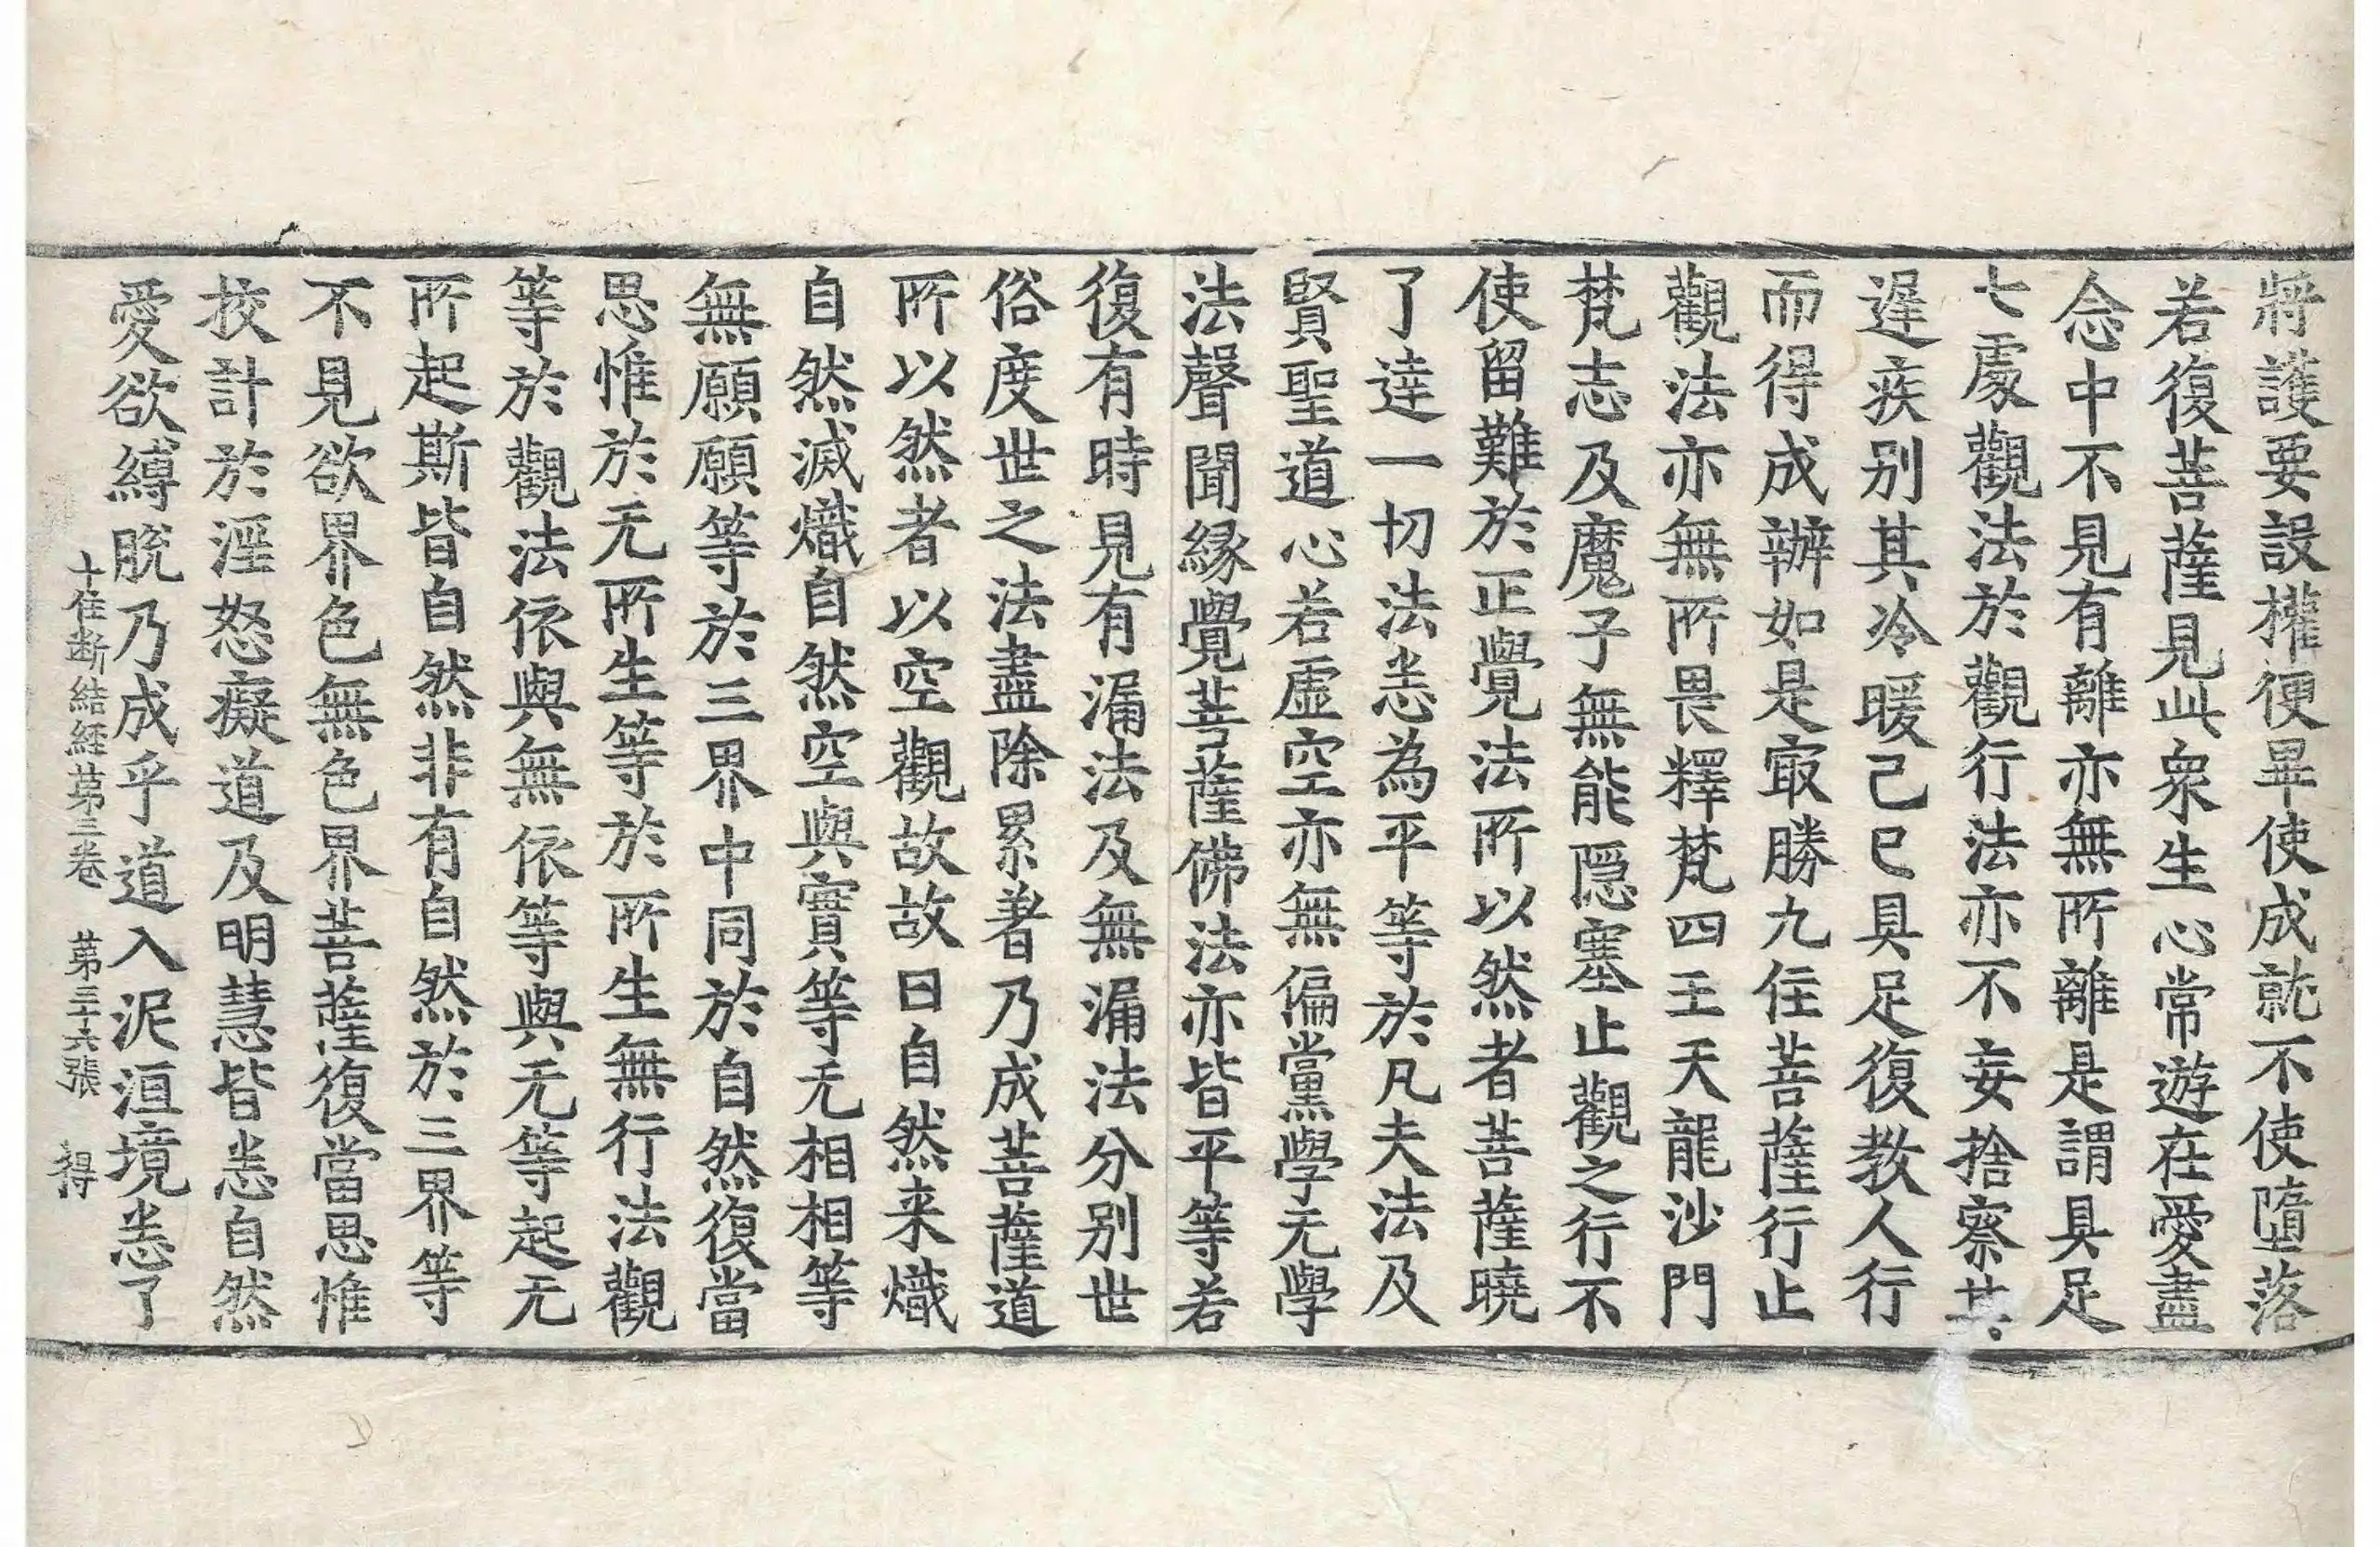 將護要設權便畢使成就不使墮落
若復菩薩見此衆生心常遊在愛盡
念中不見有離亦無所離是謂具足
七處觀法於觀行法亦不妄捨察其
遅疾别其冷暖己已具足復教人行
而得成辦如是㝡勝九住菩薩行止
觀法亦無所畏釋梵四王天龍沙門
梵志及魔子無能隠塞止觀之行不
使留難於正覺法所以然者菩薩曉
了達一切法悉為平等於凡夫法及
賢聖道心若虛空亦無偏黨學无學
法聲聞緣覺菩薩佛法亦皆平等若
復有時見有漏法及無漏法分别世
俗度世之法盡除累著乃成菩薩道
所以然者以空觀故故曰自然来熾
自然滅熾自然空與實等无相相等
無願願等於三界中同於自然復當
思惟於无所生等於所生無行法觀
等於觀法依與無依等與无等起无
所起斯皆自然非有自然於三界等
不見欲界色無色界菩薩復當思惟
挍計於淫怒癡道及明慧皆悉自然
愛欲縛脫乃成乎道入泥洹境悉了
十住断結經苐三卷　苐三十六張　得